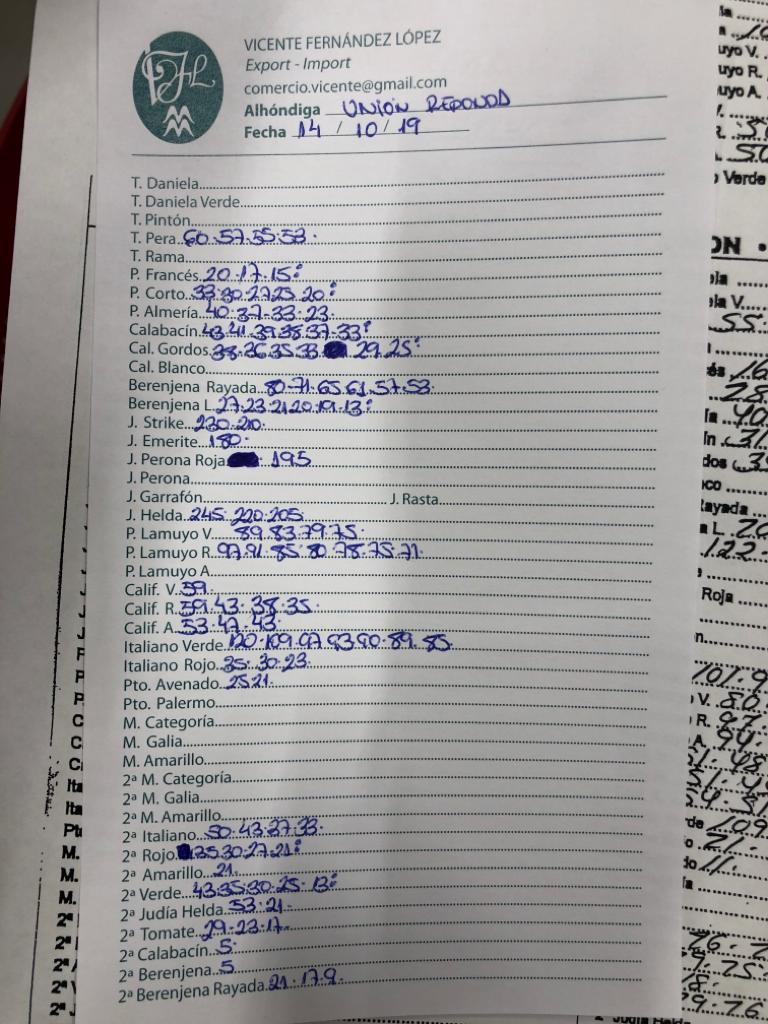 VICENTE FERNÁNDEZ LÓPEZ
Export - Import
comercio.vicente@gmail.com
Alhóndiga UNION REDONDA
Fecha 14 / 10 / 19
T. Daniela
T. Daniela Verde
T. Pintón
T. Pera 60.57.55.53.
T. Rama
P. Francés 20.17.15:
P. Corto 33.30.27.25.20:
P. Almería 40.37.33.23
Calabacín 43.41.39.38.37.33:
Cal. Gordos 38.36.35.33 29.25:
Cal. Blanco
Berenjena Rayada 80.71.65.61.57.53.
Berenjena L. 27.23.21.20.19.13:
J. Strike 230.210.
J. Emerite 180.
J. Perona Roja 195
J. Perona
J. Garrafón J. Rasta
J. Helda 245.220.205.
P. Lamuyo V. 89.83.79.75.
P. Lamuyo R. 97.91.85.80.78.75.71.
P. Lamuyo A
Calif. V. 59
Calif. R. 59.43.38.35.
Calif. A. 53.47.43.
Italiano Verde 120.109.97.93.90.89.85.
Italiano Rojo 35.30.23.
Pto. Avenado 25.21.
Pto. Palermo
M. Categoría
M. Galia
M. Amarillo
2ª M. Categoría
2ª M. Galia
2ª M. Amarillo
2ª Italiano 50.43.37.33.
2ª Rojo 35.30.27.21:
2ª Amarillo 21.
2ª Verde 43.35.30.25.13:
2ª Judía Helda 53.21.
2ª Tomate 29.23.17.
2ª Calabacín 5.
2ª Berenjena 5.
2ª Berenjena Rayada 21.17.9.